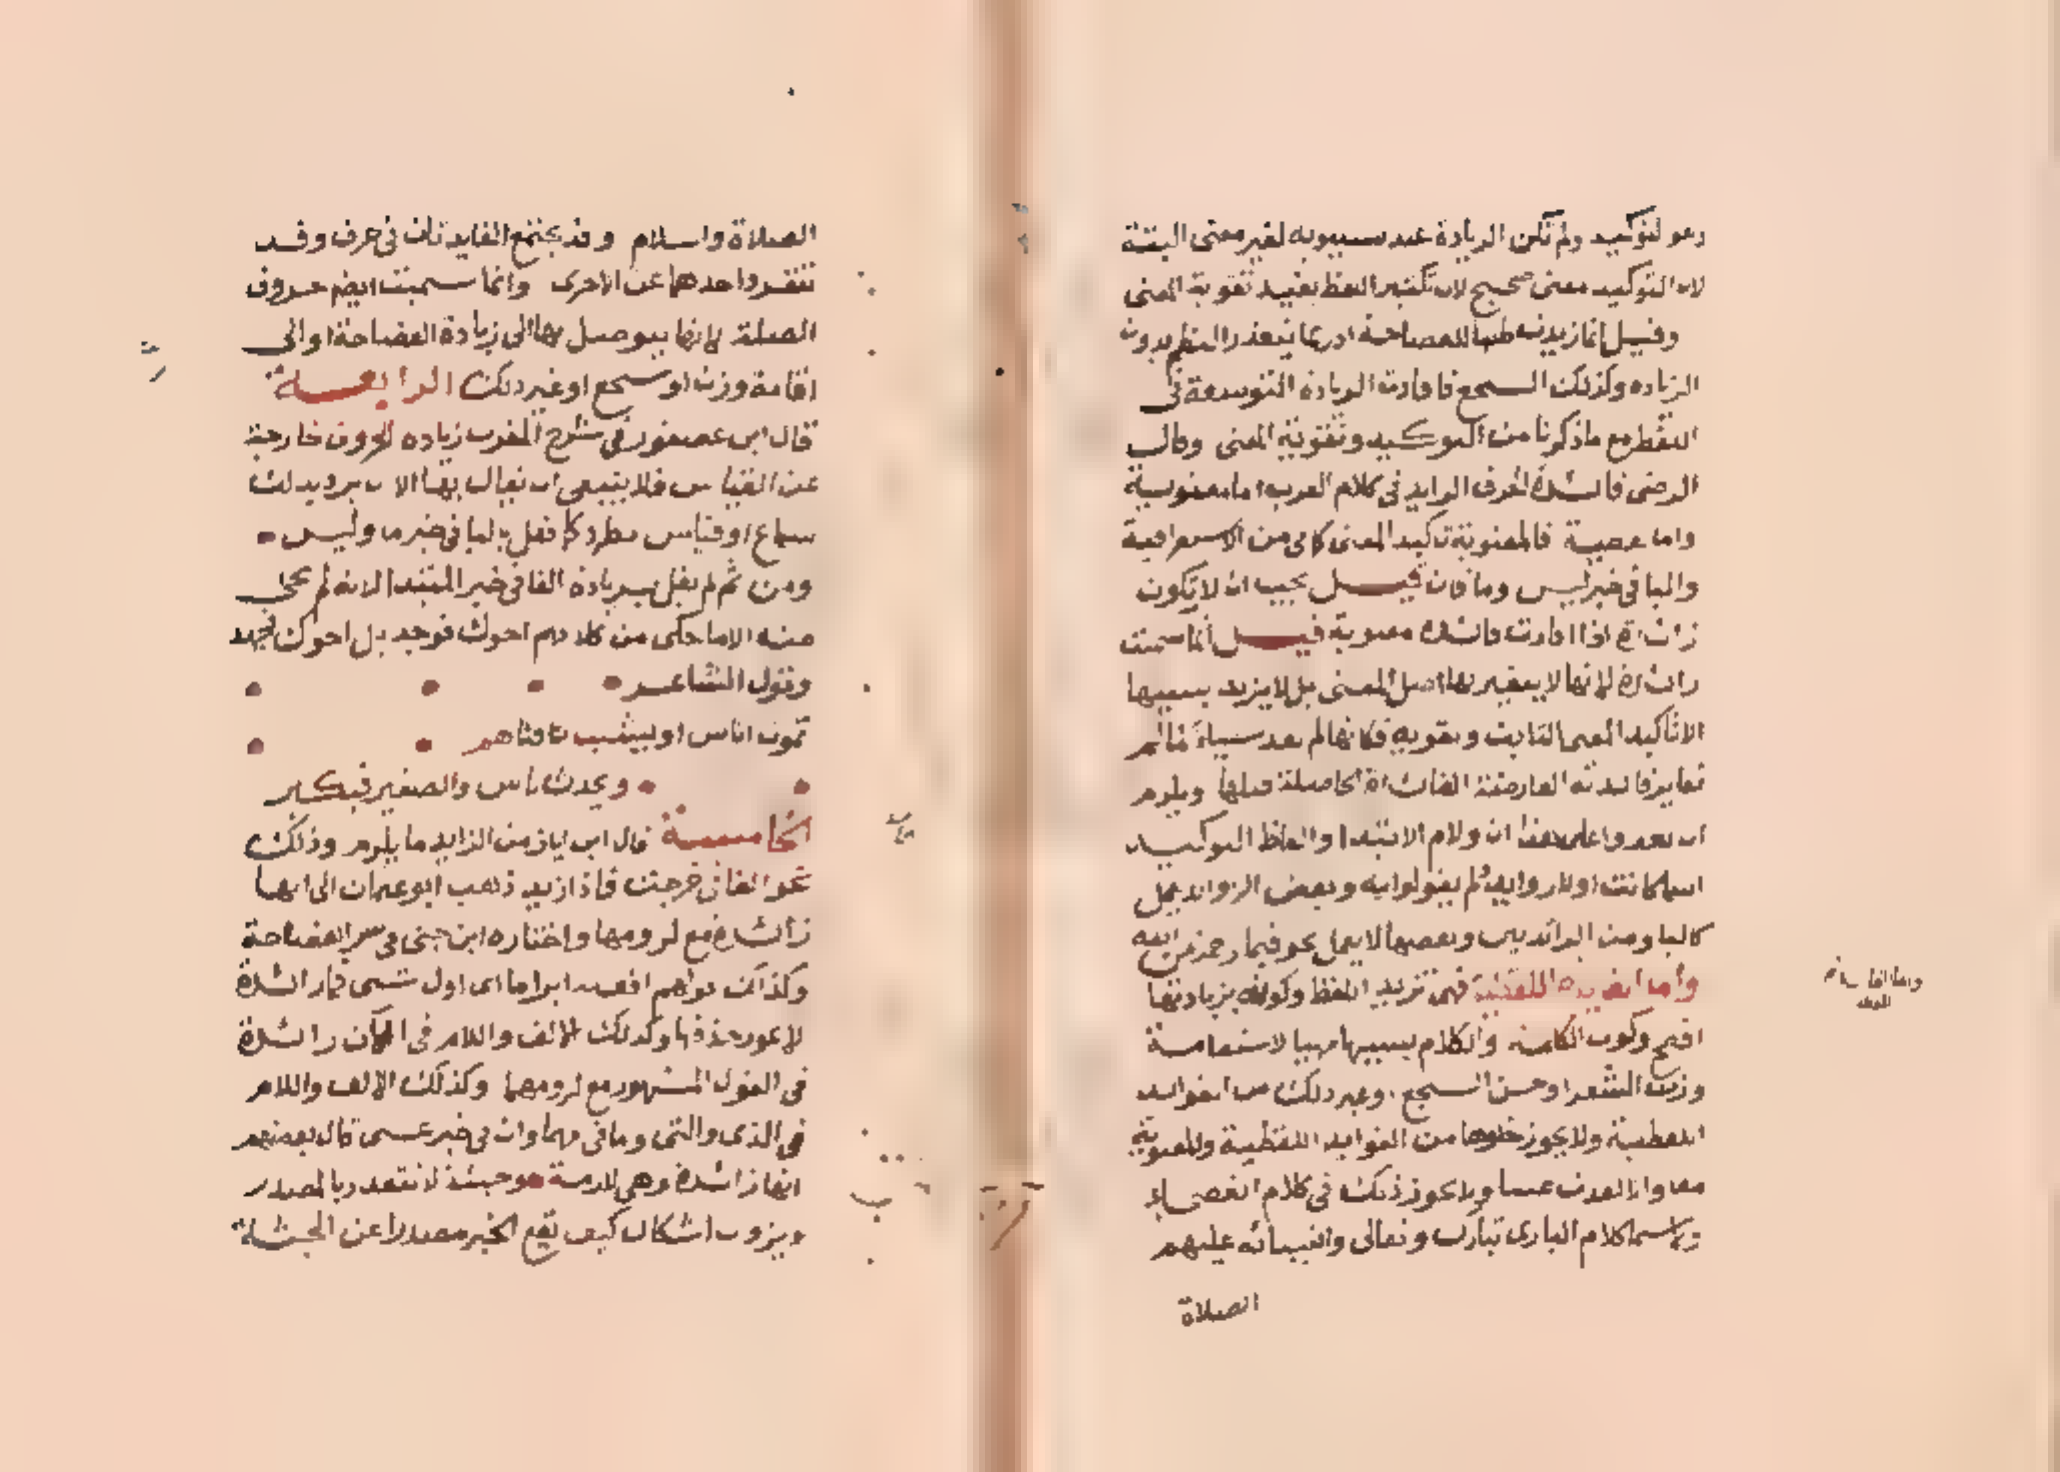 وهو التوكيد ولم تكن الزيادة عند سيبويه لغير معنى البتة
لان التوكيد معنى صحيح لان تكثير اللفظ يفيد تقوية المعنى
وقيل انما زيدت طلبا للفصاحة اذ ربما يتعذر النظم بدون
الزيادة وكذلك السجع فافادت الزيادة التوسعة في
اللفظ مع ما ذكرنا من التوكيد وتقوية المعنى وقال
الرضى فائدة الحرف الزايد في كلام العرب اما معنوية
واما لفظية فالمعنوية تاكيد المعنى كما في من الاستغراقية
والبا في خبر ليس وما فان قيل يجيب ان لا تكون
زائدة اذا افادت فائدة معنوية قيل انما سميت
زائدة لانها لا يتغير بها اصل المعنى بل لا يزيد بسببها
الا تاكيد المعنى الثابت وتقويته فكانها لم تفد شيئا لما لم
تغاير فائدته العارضة الفائدة الحاصلة قبلها ويلزم
ان يعدوا على هذا ان ولام الابتدا والفاظ التوكيد
اسما كانت اولا زوايد ولم يقولوا به وبعض الزوايد يعمل
كالبا ومن الزائدتين وبعضها لا يعمل نحو فبما رحمة من الله
وأما الفايدة اللفظية فهي تزيين اللفظ وكونه بزيادتها
افصح وكون الكلمة والكلام بسببها مهيا لاستقامة
وزن الشعر او حسن السجع وغير ذلك من الفوائد
اللفظية ولا يجوز خلوها من الفوايد اللفظية والمعنوية
معا والا لعدت عبثا ولا يجوز ذلك في كلام الفصحاء
ولا سيما كلام البارى تبارك وتعالى وانبيائه عليهم
الصلاة
الصلاة والسلام وقد تجتمع الفايدتان في حرف وقد
تنفرد احدهما عن الاخرى وانما سميت ايضم حروف
الصلة لانها يتوصل بها الى زيادة الفصاحة او الى
اقامة وزن او سجع او غير ذلك الرابعة
قال ابن عصفور في شرح المقرب زيادة الحروف خارجة
عن القياس فلا ينبغي ان يقال بها الا ان يرد بذلك
سماع او قياس مطرد كما فعل بالبا في خبر ما وليس
ومن ثم لم يقل بزيادة الفا في خبر المبتدا لانه لم يجئ
منه الا ما حكى من كلامهم اخوك فوجد بل اخوك فجهد
وقول الشاعر
تموت اناس او يشيب فتاهم
ويحدث ناس والصغير فيكبر
الخامسة قال ابن اياز من الزايد ما يلزم وذلك
نحو الفا في خرجت فاذا زيد ذهب ابو عثمان الى انها
زائدة مع لزومها واختاره ابن جنى في سر الفصاحة
وكذلك قولهم افعله اثرا ما اى اول شىء فما زائدة
لا يجوز حذفها وكذلك الالف واللام في الآن زائدة
في القول المشهور مع لزومهما وكذلك الالف واللام
في الذى والتى وما في مهما وان في خبر عسى قال بعضهم
انها زائدة وهي لازمة وحينئذ لا تتقدر بالمصدر
ويزول اشكال كيف يقع الخبر مصدرا عن الجثة